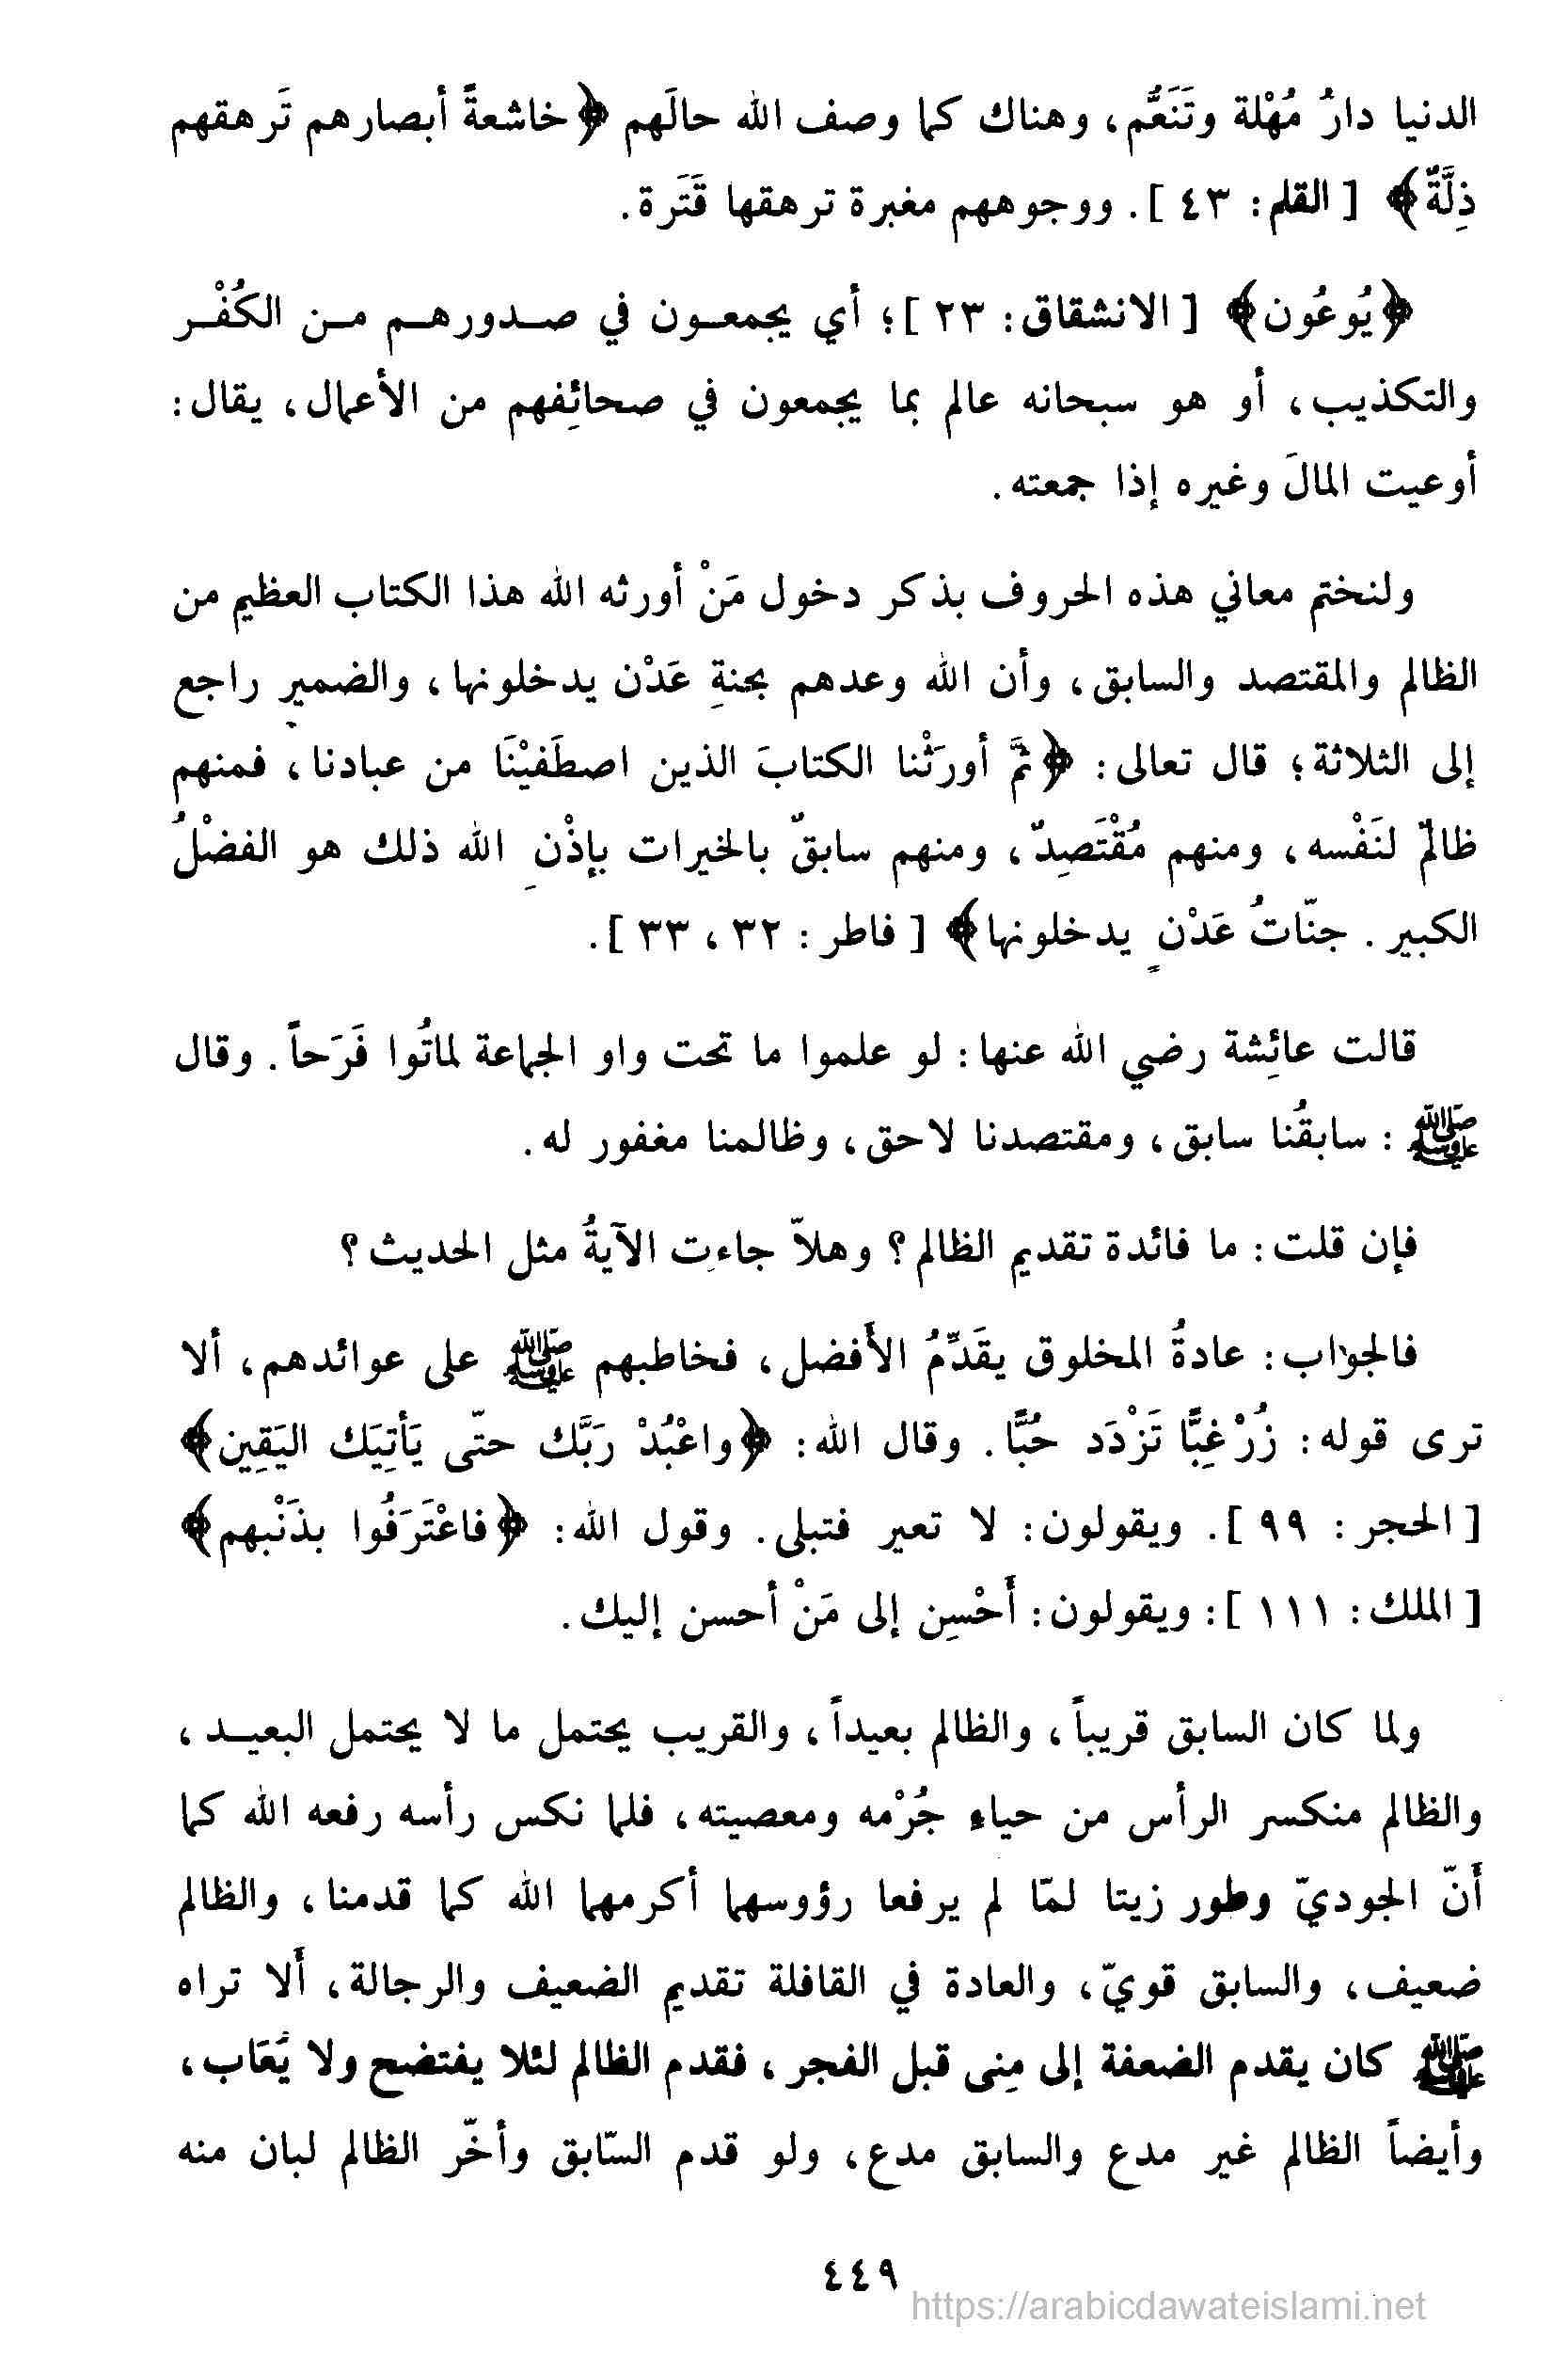 الدنيا دارُ مُهْلة وتَنَعُّم، وهناك كما وصف الله حالَهم ﴿خاشعةً أبصارهم تَرهقهم
ذِلَّةٌ﴾ [ القلم: ٤٣ ]. ووجوههم مغبرة ترهقها قَتَرة.
﴿يُوعُون﴾ [ الانشقاق: ٢٣ ]؛ أي يجمعـون في صـدورهـم مـن الكُفْـر
والتكذيب، أو هو سبحانه عالم بما يجمعون في صحائِفهم من الأعمال، يقال:
أوعيت المالَ وغيره إذا جمعته.
ولنختم معاني هذه الحروف بذكر دخول مَنْ أورثه الله هذا الكتاب العظيم من
الظالم والمقتصد والسابق، وأن الله وعدهم بجنةِ عَدْن يدخلونها، والضمير راجع
إلى الثلاثة؛ قال تعالى: ﴿ثمَّ أورَثْنا الكتابَ الذين اصطَفيْنَا من عبادنا، فمنهم
ظالمٌ لنَفْسه، ومنهم مُقْتَصِدٌ، ومنهم سابقٌ بالخيرات بإذْنِ الله ذلك هو الفضْلُ
الكبير. جنّاتُ عَدْنٍ يدخلونها﴾ [ فاطر: ٣٢، ٣٣ ].
قالت عائِشة رضي الله عنها: لو علموا ما تحت واو الجماعة لماتُوا فَرَحاً. وقال
ﷺ: سابقُنا سابق، ومقتصدنا لاحق، وظالمنا مغفور له.
فإن قلت: ما فائدة تقديم الظالم؟ وهلاّ جاءت الآيةُ مثل الحديث؟
فالجواب: عادةُ المخلوق يقَدِّمُ الأَفضل، فخاطبهم ﷺ على عوائدهم، ألا
ترى قوله: زُرْ غِبًّا تَزْدَد حُبًّا. وقال الله: ﴿واعْبُدْ رَبَّك حتّى يَأتِيَك اليَقِين﴾
[ الحجر: ٩٩ ]. ويقولون: لا تعير فتبلى. وقول الله: ﴿فاعْتَرَفُوا بذَنْبهم﴾
[ الملك: ١١١ ]: ويقولون: أَحْسِن إلى مَنْ أحسن إليك.
ولما كان السابق قريباً، والظالم بعيداً، والقريب يحتمل ما لا يحتمل البعيـد،
والظالم منكسر الرأس من حياءِ جُرْمه ومعصيته، فلما نكس رأسه رفعه الله كما
أَنّ الجوديّ وطور زيتا لمّا لم يرفعا رؤوسهما أكرمهما الله كما قدمنا، والظالم
ضعيف، والسابق قويّ، والعادة في القافلة تقديم الضعيف والرجالة، أَلا تراه
ﷺ كان يقدم الضعفة إلى مِنى قبل الفجر، فقدم الظالم لئلا يفتضح ولا يُعَاب،
وأيضاً الظالم غير مدع والسابق مدع، ولو قدم السّابق وأخّر الظالم لبان منه
٤٤٩
https://arabicdawateislami.net